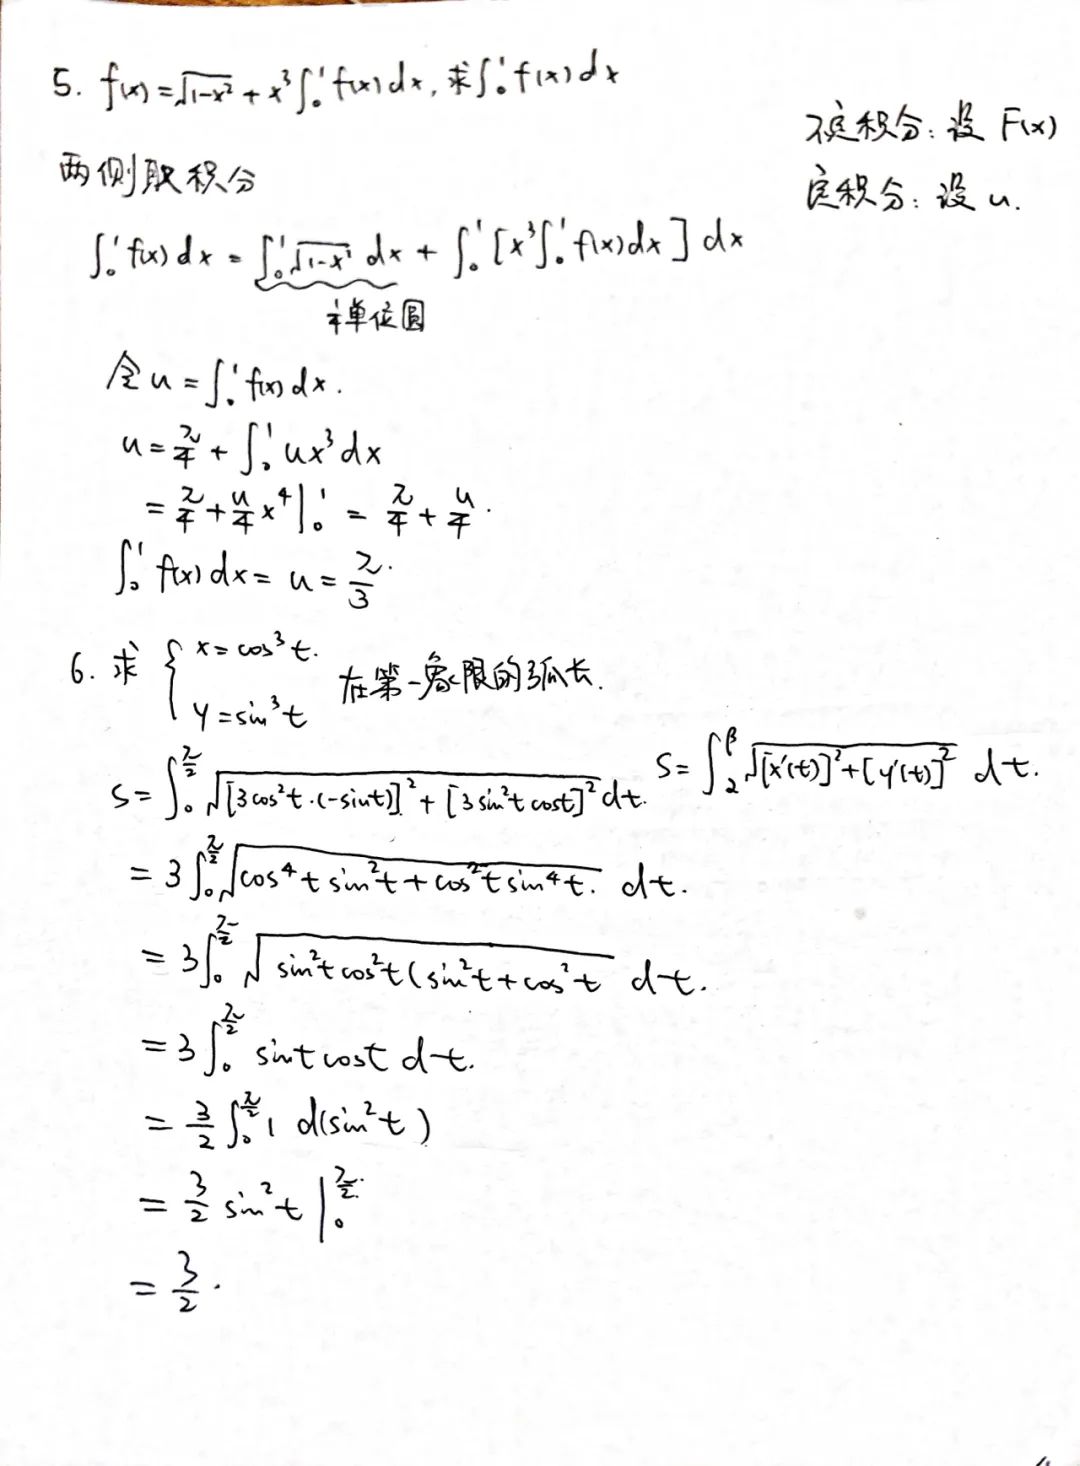 5. f(x)=√(1-x²)+x³∫₀¹f(x)dx, 求∫₀¹f(x)dx
不定积分: 设 F(x)
两侧取积分
定积分: 设 u.
∫₀¹f(x)dx = ∫₀¹√(1-x²) dx + ∫₀¹[x³∫₀¹f(x)dx] dx
¼单位圆
令 u = ∫₀¹f(x)dx.
u = π/4 + ∫₀¹ux³dx
= π/4 + u/4 x⁴|₀¹ = π/4 + u/4.
∫₀¹f(x)dx = u = π/3.
6. 求 { x=cos³t. y=sin³t 在第一象限的弧长.
S=∫₀^(π/2) √([3cos²t·(-sint)]²+[3sin²tcost]²) dt. S=∫₂^β √([x'(t)]²+[y'(t)]²) dt.
= 3∫₀^(π/2) √(cos⁴tsin²t+cos²tsin⁴t.) dt.
= 3∫₀^(π/2) √(sin²tcos²t(sin²t+cos²t) dt.
= 3∫₀^(π/2) sintcost dt.
= 3/2 ∫₀^(π/2) 1 d(sin²t)
= 3/2 sin²t |₀^(π/2).
= 3/2.